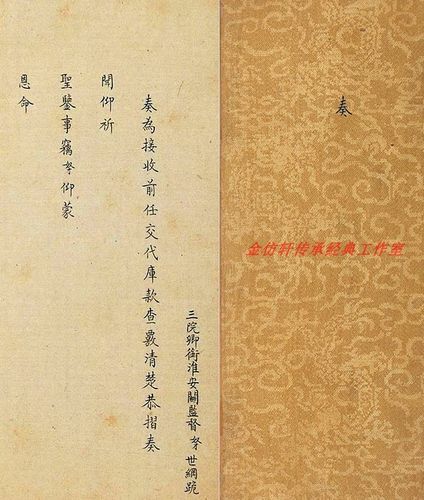 奏
金仿轩传承经典工作室
三院卿銜淮安關監督奴才世綱跪
奏為接收前任交代庫款查覈清楚恭摺奏
聞仰祈
聖鑒事竊奴才仰蒙
恩命